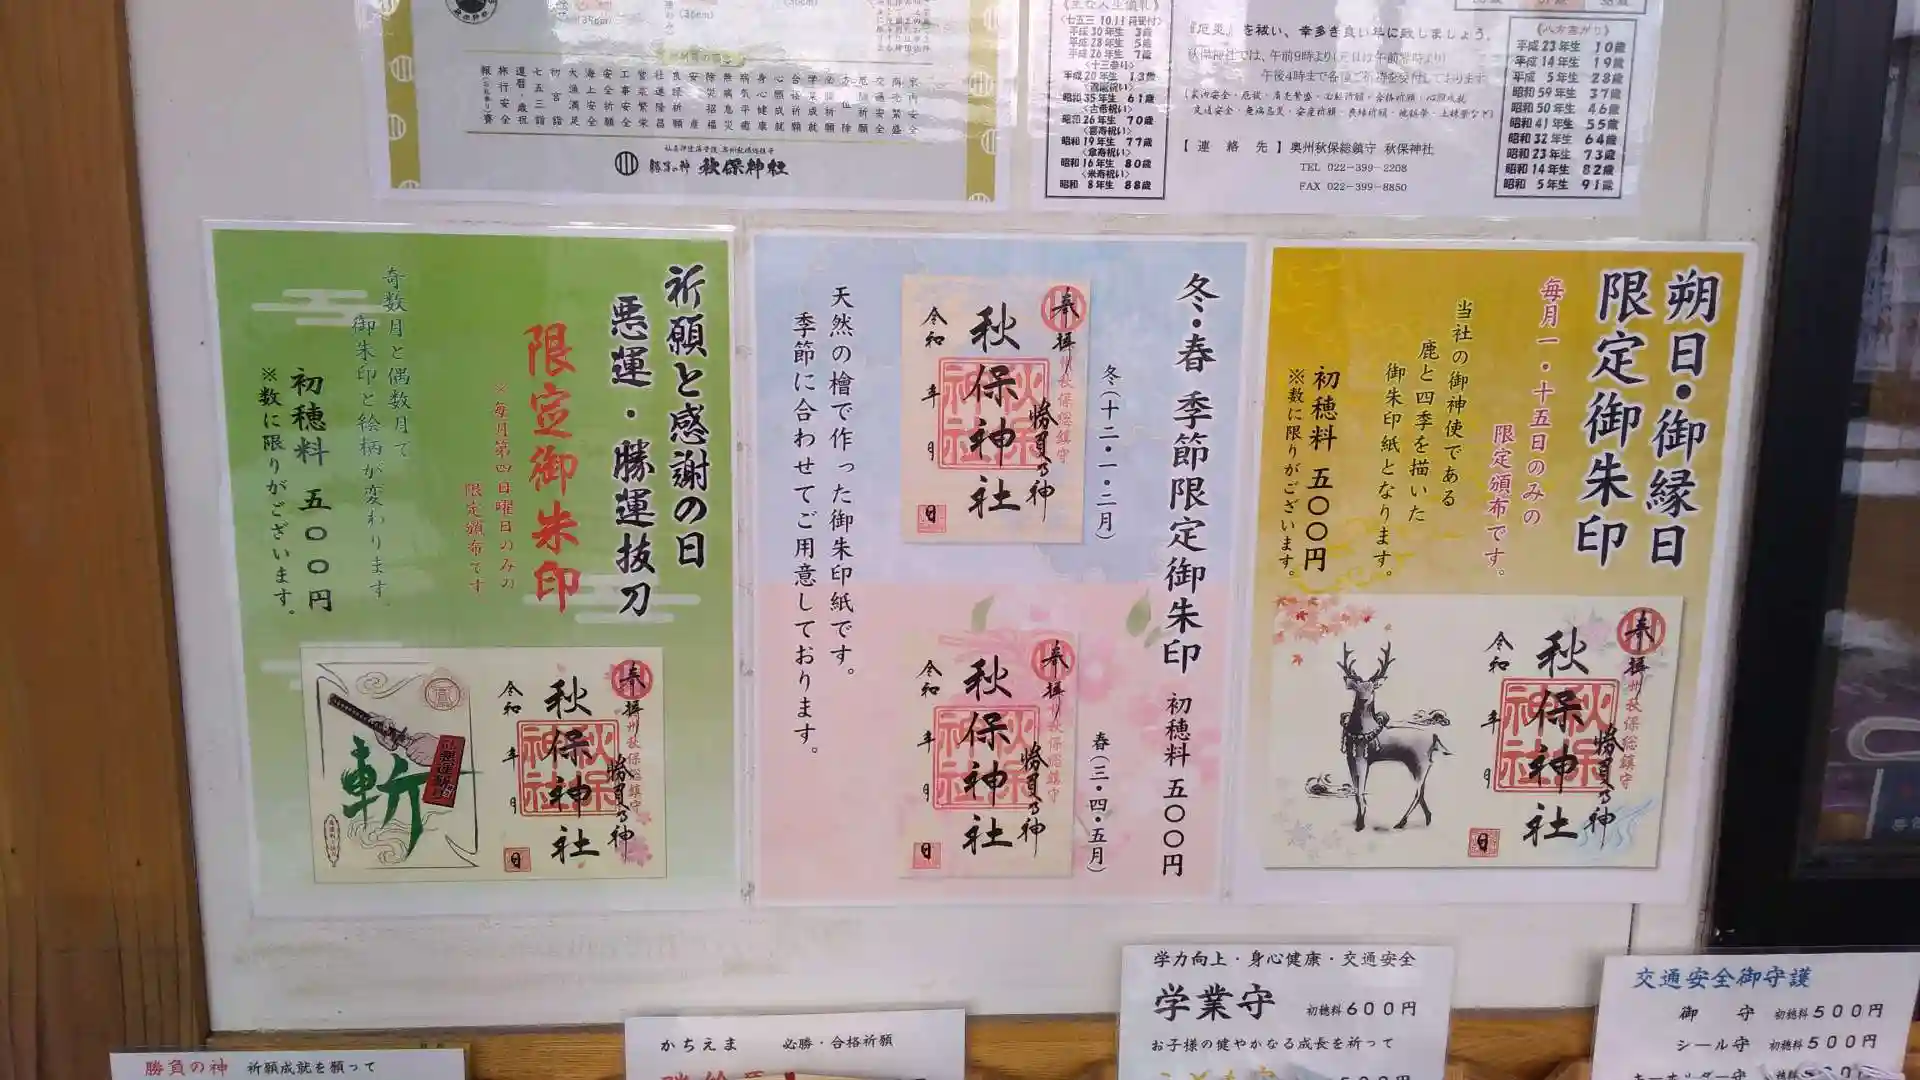 家内安全
商売繁盛
交通安全
厄除祈願
方位除
必勝祈願
学業成就
合格祈願
心願成就
身心健康
病気平癒
無病息災
除災招福
安産
良縁祈願
社運隆昌
営業繁栄
工事安全
安全祈願
海上安全
大漁満足
初宮詣
七五三詣
還暦・歳祝
旅行安全
勝負の神 秋保神社
主な人生儀礼
平成30年生 3歳
平成28年生 5歳
平成26年生 7歳
〈十三参り〉
平成20年生 13歳
昭和35年生 61歳
〈古希祝い〉
昭和26年生 70歳
〈喜寿祝い〉
昭和19年生 77歳
〈傘寿祝い〉
昭和16年生 80歳
〈米寿祝い〉
昭和 8年生 88歳
『厄災』を祓い、幸多き良い年に致しましょう。
【 連 絡 先 】奥州秋保総鎮守 秋保神社
TEL 022-399-2208
FAX 022-399-8850
〈八方塞がり〉
平成23年生 10歳
平成14年生 19歳
平成 5年生 28歳
昭和59年生 37歳
昭和50年生 46歳
昭和41年生 55歳
昭和32年生 64歳
昭和23年生 73歳
昭和14年生 82歳
昭和 5年生 91歳
朔日・御縁日
限定御朱印
毎月一・十五日のみの
限定頒布です。
当社の御神使である
鹿と四季を描いた
御朱印紙となります。
初穂料 五〇〇円
※数に限りがございます。
奉拝
奥州秋保総鎮守
勝負の神
秋保神社
令和 年 月 日
冬・春 季節限定御朱印 初穂料 五〇〇円
冬(十二・一・二月)
奉拝
奥州秋保総鎮守
勝負の神
秋保神社
令和 年 月 日
春(三・四・五月)
奉拝
奥州秋保総鎮守
勝負の神
秋保神社
令和 年 月 日
天然の檜で作った御朱印紙です。
季節に合わせてご用意しております。
祈願と感謝の日
悪運・勝運抜刀
限定御朱印
※毎月第四日曜日のみの
限定頒布です
奇数月と偶数月で
御朱印と絵柄が変わります。
初穂料 五〇〇円
※数に限りがございます。
奉拝
奥州秋保総鎮守
勝負の神
秋保神社
令和 年 月 日
斬
勝負の神 祈願成就を願って
かちえま 必勝・合格祈願
学力向上・身心健康・交通安全
学業守 初穂料600円
お子様の健やかなる成長を祈って
交通安全御守護
御 守 初穂料500円
シール守 初穂料500円
キーホルダー守